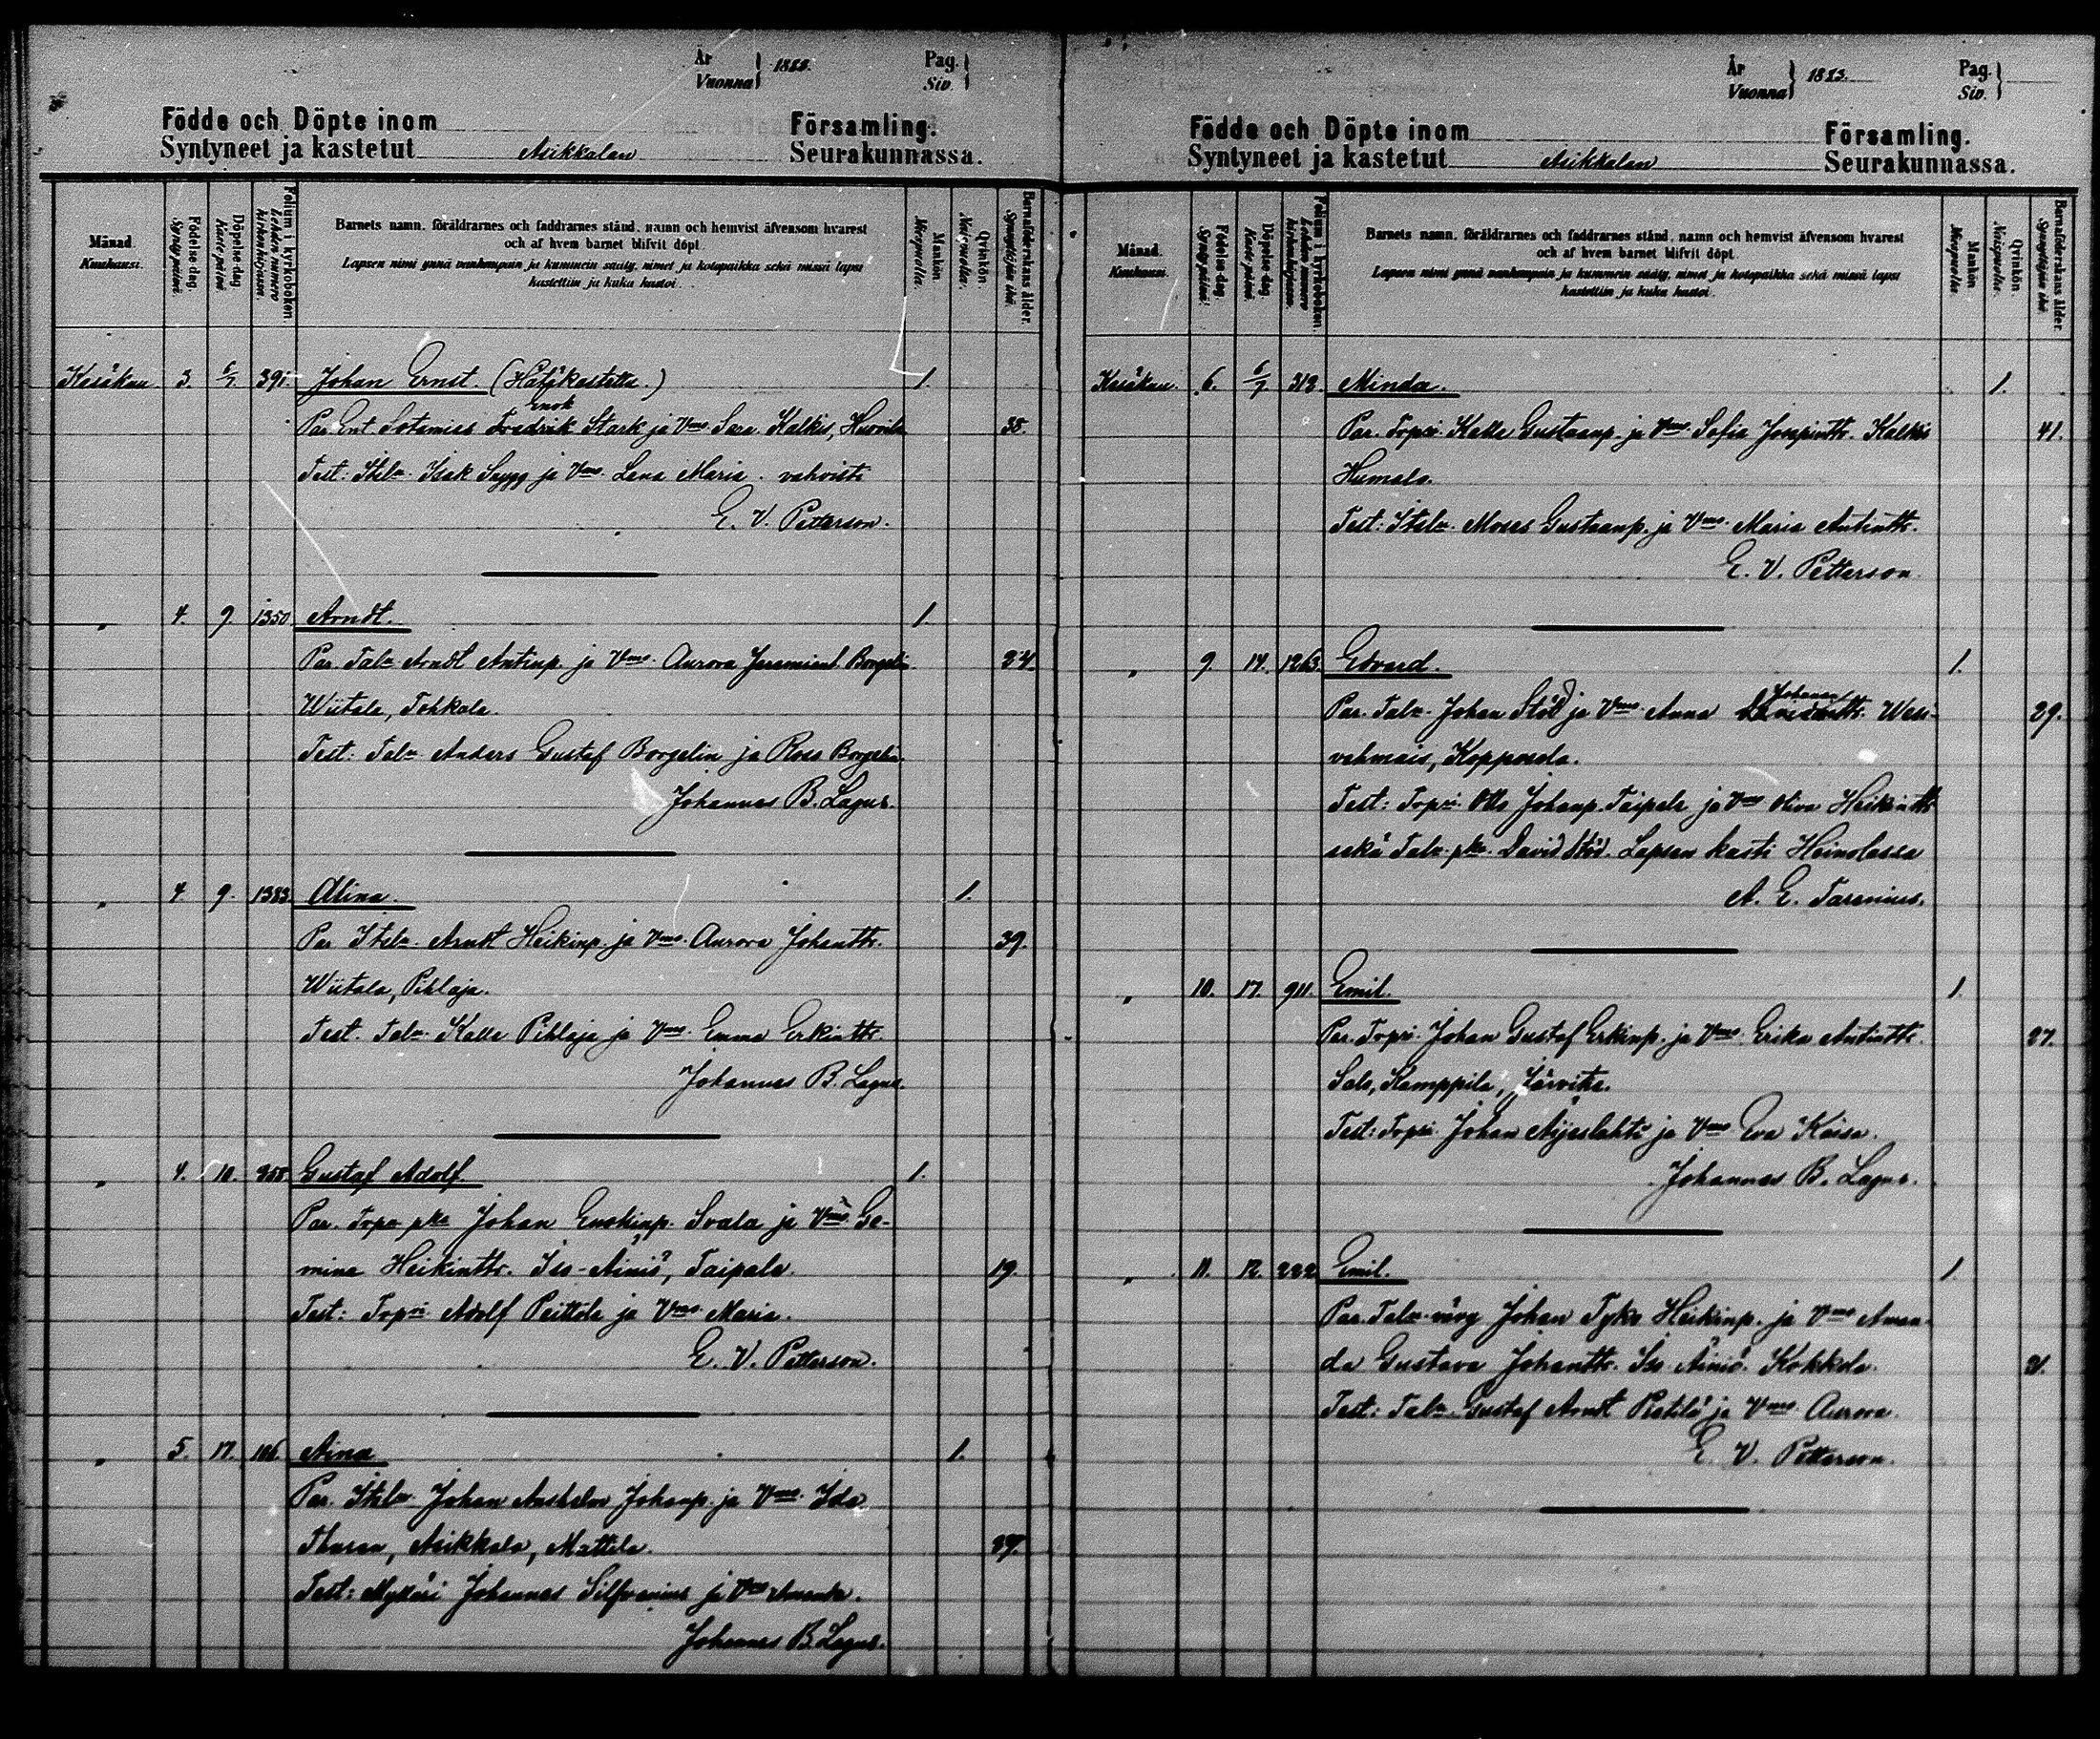 År
Vuonna } 1883.
Pag.
Siv. }
Födde och Döpte inom Församling.
Syntyneet ja kastetut Asikkalan Seurakunnassa.
Månad.
Kuukausi.
Födelse-dag.
Syntypäivä.
Döpelse-dag.
Kastepäivä.
Folium i kyrkoboken.
Lehden numero kirkonkirjassa.
Barnets namn, föräldrarnes och faddrarnes stånd, namn och hemvist äfvensom hvarest
och af hvem barnet blifvit döpt.
Lapsen nimi ynnä vanhempain ja kummein sääty, nimet ja kotopaikka sekä missä lapsi
kastettiin ja kuka kastoi.
Mankön.
Miespuolta.
Qvinkön.
Naispuolta.
Barnaföderskans ålder.
Synnyttäjän ikä.
Kesäkuu 3. 6/7 391. Johan Ernst. (Hätäkastettu.) 1.
Enok
Par. Ent. Sotamies Fredrik Stark ja Vmo. Sara Kalkis, Huovila 38.
Test: Itsln. Isak Sagyg ja Vmo. Lena Maria. vahvisti
E. V. Petterson.
" 4. 9. 1350. Arndt. 1.
Par. Taln. Arndt Antinp. ja Vmo. Aurora Jeremiant. Borgelin 34.
Wiitala, Tohkala.
Test: Taln. Anders Gustaf Borgelin ja Rosa Borgelin.
Johannes B. Lagus.
" 4. 9. 1383. Alina. 1.
Par Itsln. Arndt Heikinp. ja Vmo. Aurora Johantr. 39.
Wiitala, Pihlaja.
Test. Taln. Kalle Pihlaja ja Vmo. Emma Erkintr.
Johannes B. Lagus.
" 4. 10. 958. Gustaf Adolf. 1.
Par. Torp. pka Johan Enokinp. Svala ja Vmo. Ge-
mina Heikintr. Iso-Äiniö, Taipale. 19.
Test: Torpri Adolf Peittola ja Vmo. Maria.
E. V. Petterson.
" 5. 17. 106. Aina 1.
Par. Itsln. Johan Anshelm Johanp. ja Vmo. Ida
Thuran, Asikkala, Mattila.
Test: Mylläri Johannes Silfvenius ja Vmo Amanda.
Johannes B. Lagus.
År
Vuonna } 1883.
Pag.
Siv. }
Födde och Döpte inom Församling.
Syntyneet ja kastetut Asikkalan Seurakunnassa.
Månad.
Kuukausi.
Födelse-dag.
Syntypäivä.
Döpelse-dag.
Kastepäivä.
Folium i kyrkoboken.
Lehden numero kirkonkirjassa.
Barnets namn, föräldrarnes och faddrarnes stånd, namn och hemvist äfvensom hvarest
och af hvem barnet blifvit döpt.
Lapsen nimi ynnä vanhempain ja kummein sääty, nimet ja kotopaikka sekä missä lapsi
kastettiin ja kuka kastoi.
Mankön.
Miespuolta.
Qvinkön.
Naispuolta.
Barnaföderskans ålder.
Synnyttäjän ikä.
Kesäkuu. 6. 6/7 312. Minda. 1.
Par. Torpri. Kalle Gustaanp. ja Vmo. Sofia Josepintr. Kalkis 41.
Humala.
Test: Itsln. Moses Gustaanp. ja Vmo. Maria Antintr.
E. V. Petterson.
" 9. 14. 1263. Edvard. 1.
Johanan
Par. Taln. Johan Stöd ja Vmo. Anna Davidintr. Wesi- 29.
vehmais, Kopposela.
Test: Torpri. Otto Johanp. Taipale ja Vmo Oliva Heikintr
sekä Taln. pka. David Stöd. Lapsen kasti Heinolassa
A. E. Tarenius.
" 10. 17. 911. Emil. 1.
Par. Torpri. Johan Gustaf Erkinp. ja Vmo. Erika Antintr. 27.
Salo, Kamppila, Särvika.
Test: Torpri. Johan Äijeslahti ja Vmo. Eva Kaisa.
Johannes B. Lagus.
" 11. 12. 222 Emil. 1.
Par. Taln. vävy Johan Tyko Heikinp. ja Vmo Aman-
da Gustava Johantr. Iso Äiniö. Kokkola. 21.
Test: Taln. Gustaf Arndt Pietilä ja Vmo Aurora.
E. V. Petterson.